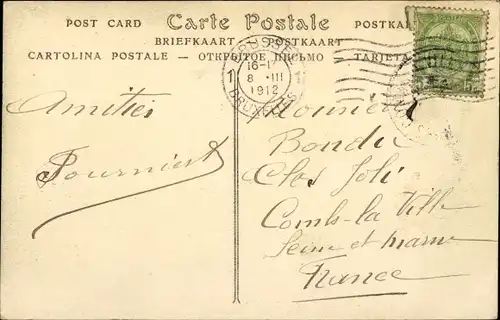 POST CARD Carte Postale POSTKAR
BRIEFKAART — POSTKAART
CARTOLINA POSTALE — ОТКРЫТОЕ ПИСЬМО — TARJETA
BRUSSEL
16-1
1 8 III 1
1912
BRUXELLES
Amitiés
Fournier
Bondu
Clos Joli
Combs-la Ville
Seine et Marne
France